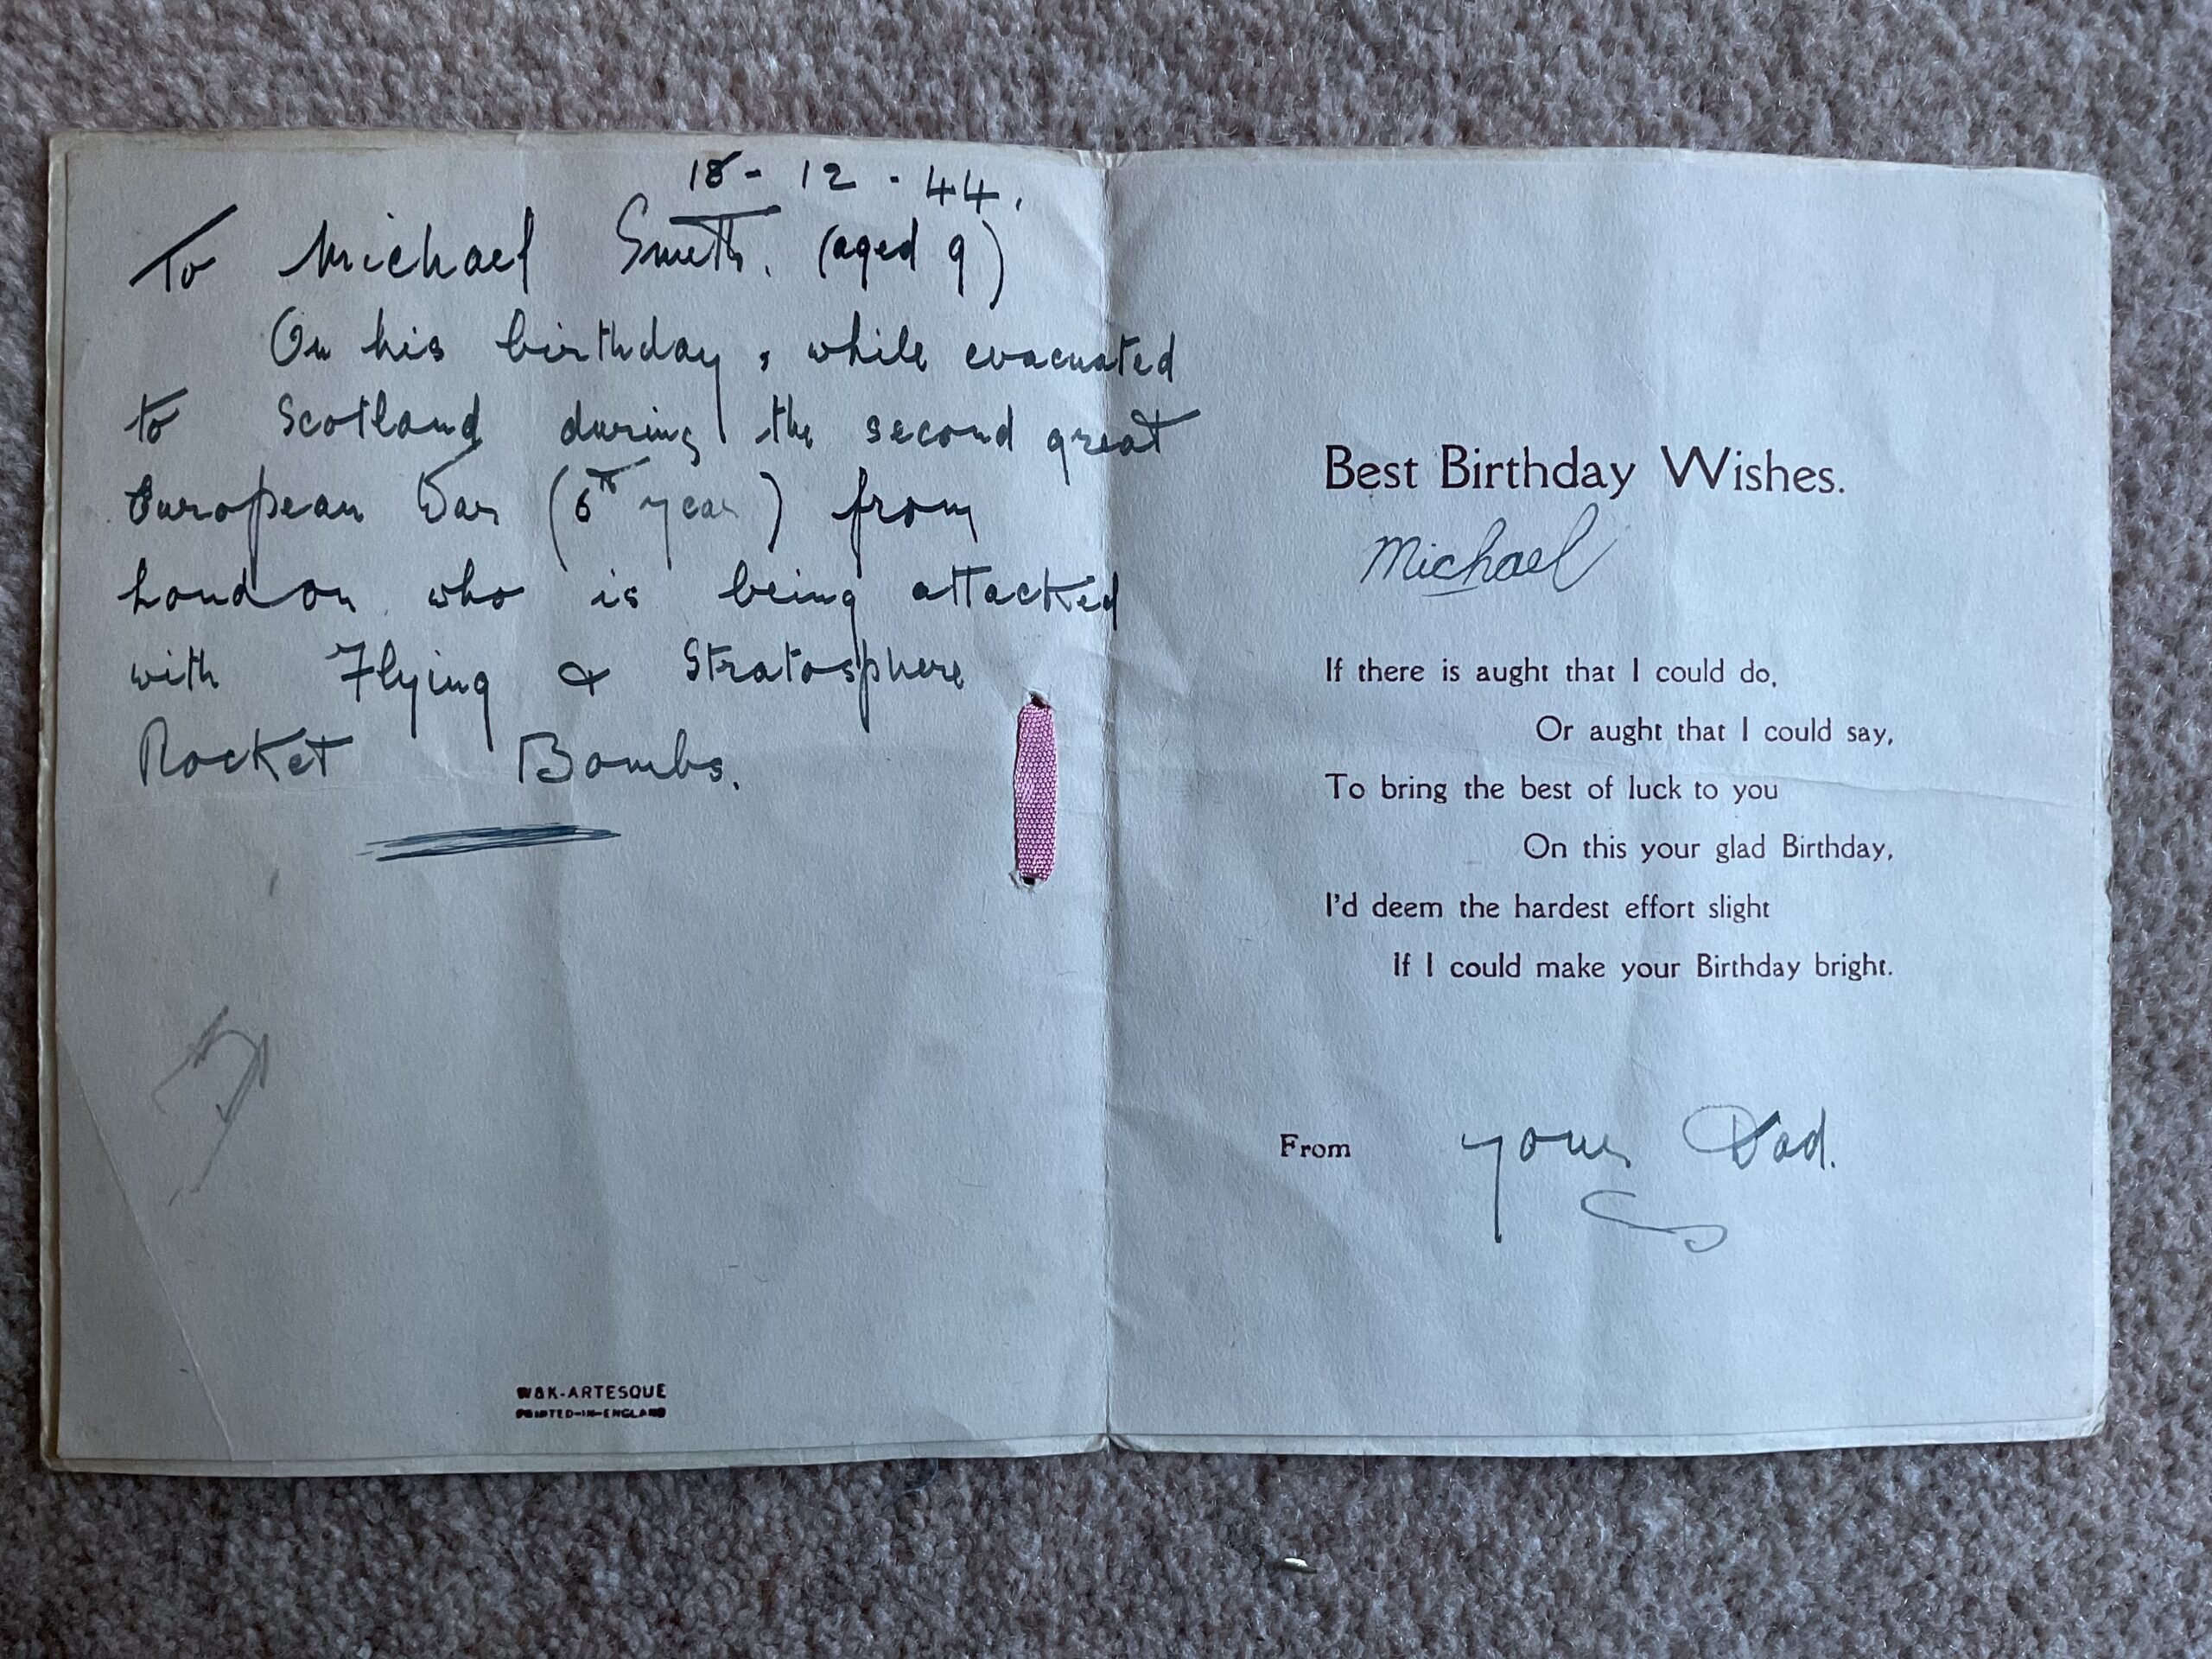 18 - 12 - 44.
To Michael Smith. (aged 9)
On his birthday, while evacuated
to Scotland during the second great
European War (6th year) from
London who is being attacked
with Flying & Stratosphere
Rocket Bombs.
W&K-ARTESQUE
PRINTED-IN-ENGLAND
Best Birthday Wishes.
Michael
If there is aught that I could do,
Or aught that I could say,
To bring the best of luck to you
On this your glad Birthday,
I'd deem the hardest effort slight
If I could make your Birthday bright.
From your Dad.